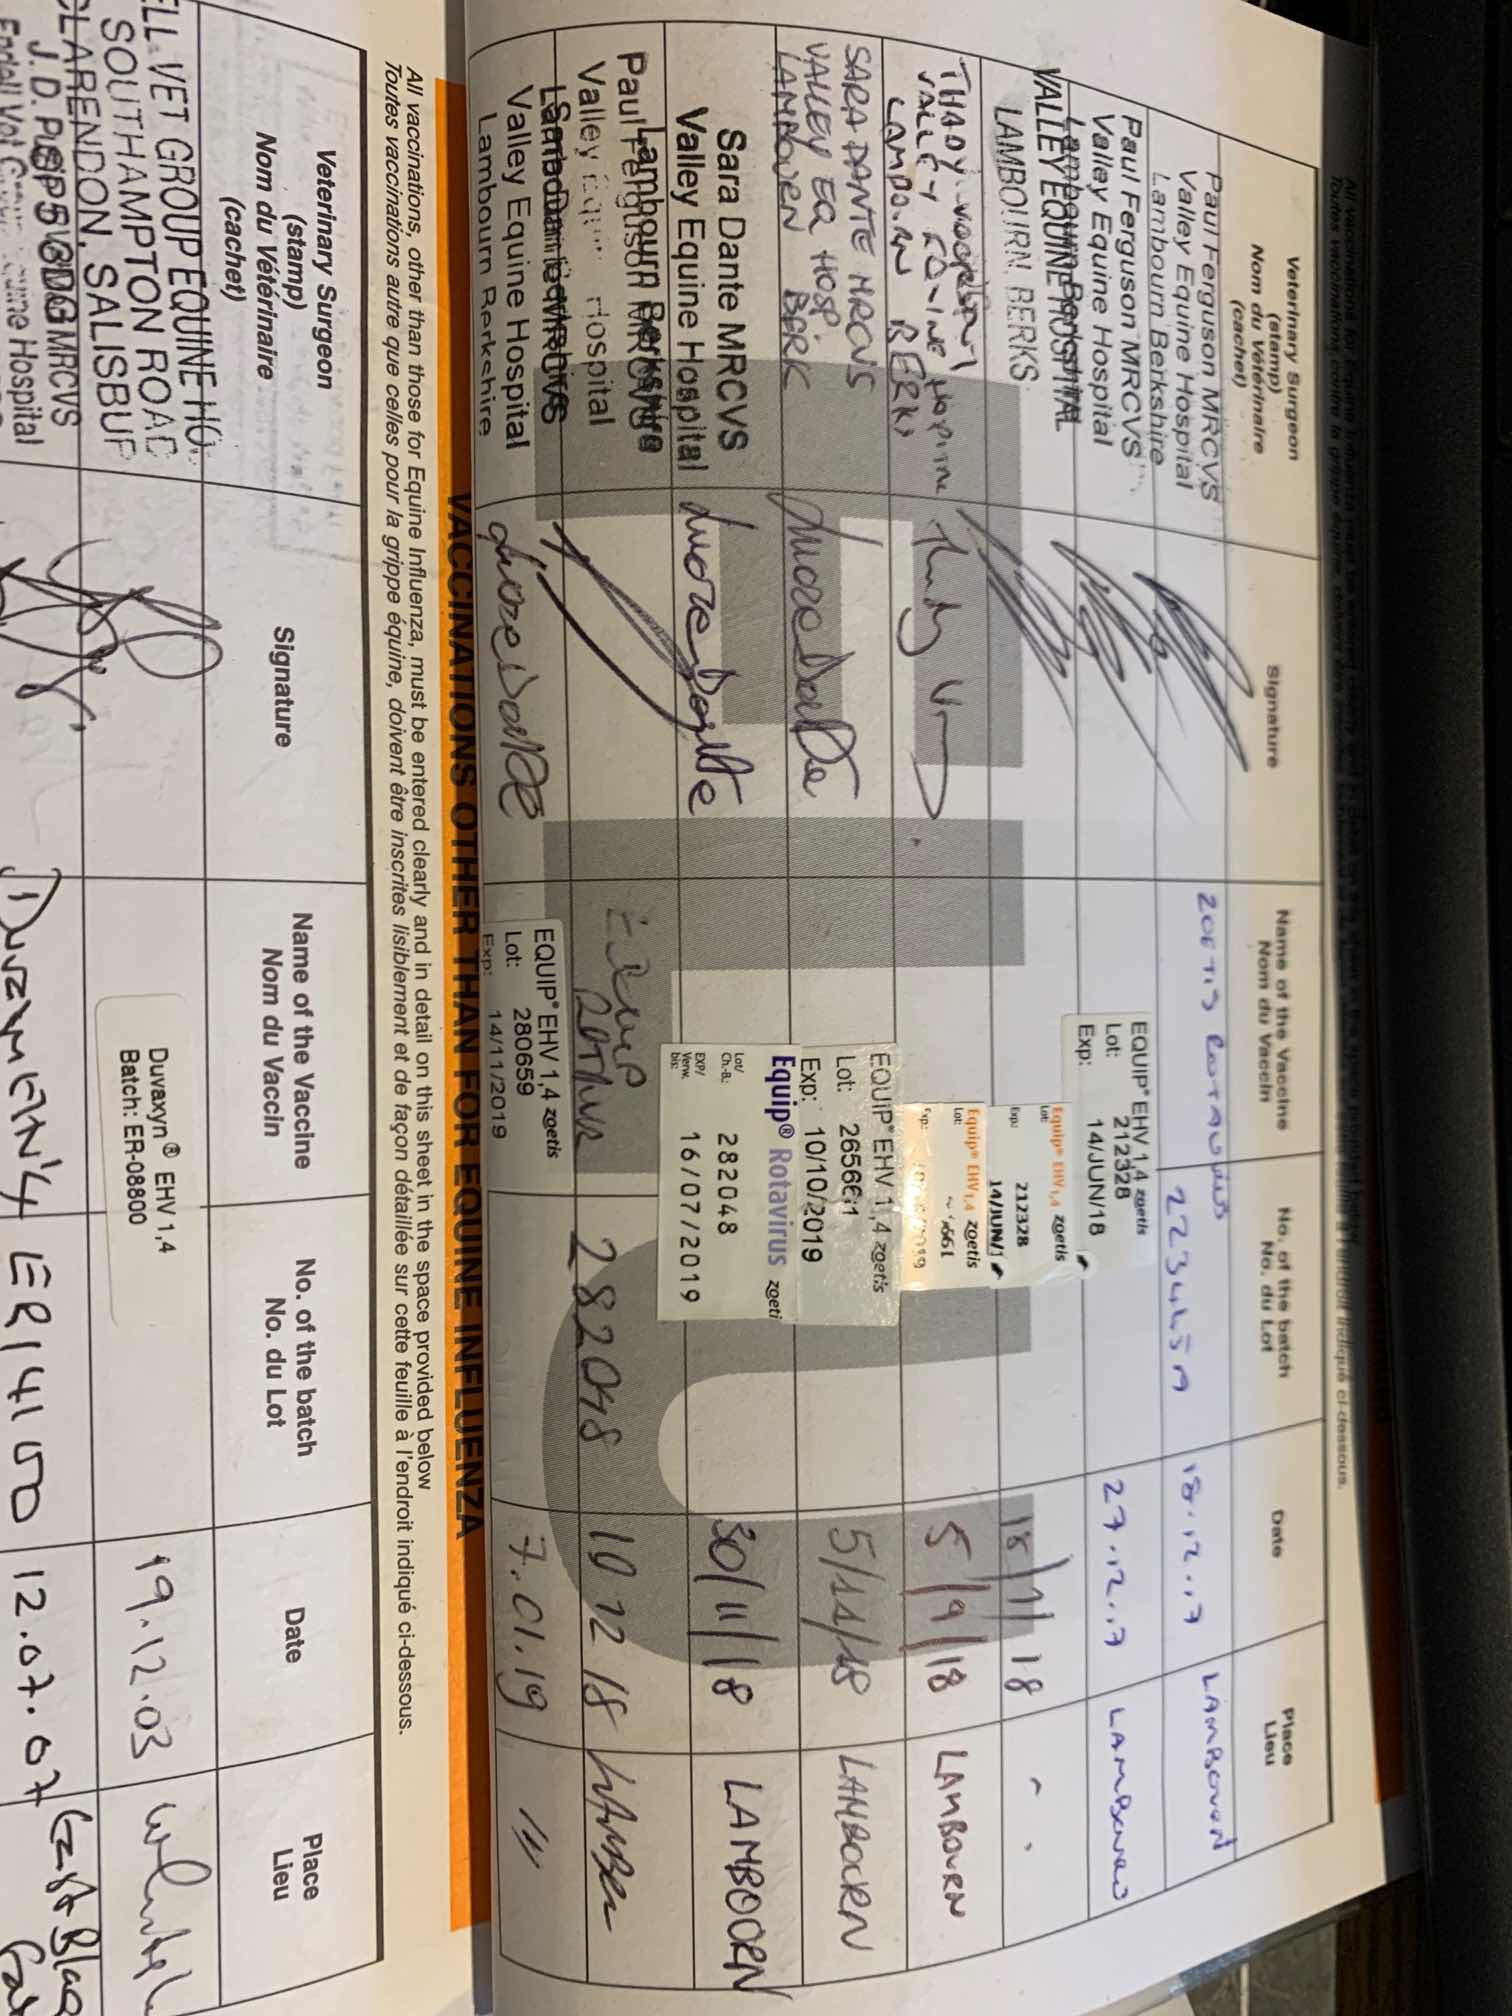 Veterinary Surgeon
(stamp)
Nom du Vétérinaire
(cachet)
Signature
Name of the Vaccine
Nom du Vaccin
No. of the batch
No. du Lot
Date
Place
Lieu
Paul Ferguson MRCVS
Valley Equine Hospital
Lambourn Berkshire
ZOETIS ROTAVIRUS
18.12.17
LAMBOURN
Paul Ferguson MRCVS
Valley Equine Hospital
Lambourn Berkshire
EQUIP® EHV 1,4 zoetis
Lot: 212328
Exp: 14/JUN/18
27.12.17
LAMBOURN
VALLEY EQUINE HOSPITAL
LAMBOURN. BERKS.
Equip® EHV 1,4 zoetis
Lot: 212328
Exp: 14/JUN/1
18/1/18
THADY
VALLEY EQUINE HOSPITAL
LAMBOURN BERKS
Equip® EHV 1,4 zoetis
Lot:
Exp:
5/9/18
LAMBOURN
SARA DANTE MRCVS
VALLEY EQ HOSP.
LAMBOURN BERK
EQUIP® EHV 1,4 zoetis
Lot: 265661
Exp: 10/10/2019
5/11/18
LAMBOURN
Sara Dante MRCVS
Valley Equine Hospital
Lambourn Berkshire
Equip® Rotavirus zoeti
Lot/
Ch.-B.: 282048
EXP/
Verw.
bis: 16/07/2019
30/11/18
LAMBOORN
Paul Ferguson MRCVS
Valley Equine Hospital
Lambourn Berkshire
282048
10 12 18
Sara Dante MRCVS
Valley Equine Hospital
Lambourn Berkshire
EQUIP® EHV 1,4 zoetis
Lot: 280659
Exp: 14/11/2019
7.01.19
VACCINATIONS OTHER THAN FOR EQUINE INFLUENZA
All vaccinations, other than those for Equine Influenza, must be entered clearly and in detail on this sheet in the space provided below
Toutes vaccinations autre que celles pour la grippe équine, doivent être inscrites lisiblement et de façon détaillée sur cette feuille à l'endroit indiqué ci-dessous.
Veterinary Surgeon
(stamp)
Nom du Vétérinaire
(cachet)
Signature
Name of the Vaccine
Nom du Vaccin
No. of the batch
No. du Lot
Date
Place
Lieu
ELL VET GROUP EQUINE HO
SOUTHAMPTON ROAD
CLARENDON, SALISBUR
Duvaxyn® EHV 1,4
Batch: ER-08800
19.12.03
MRCVS
Endell Vet Group Equine Hospital
ER14100
12.07.07